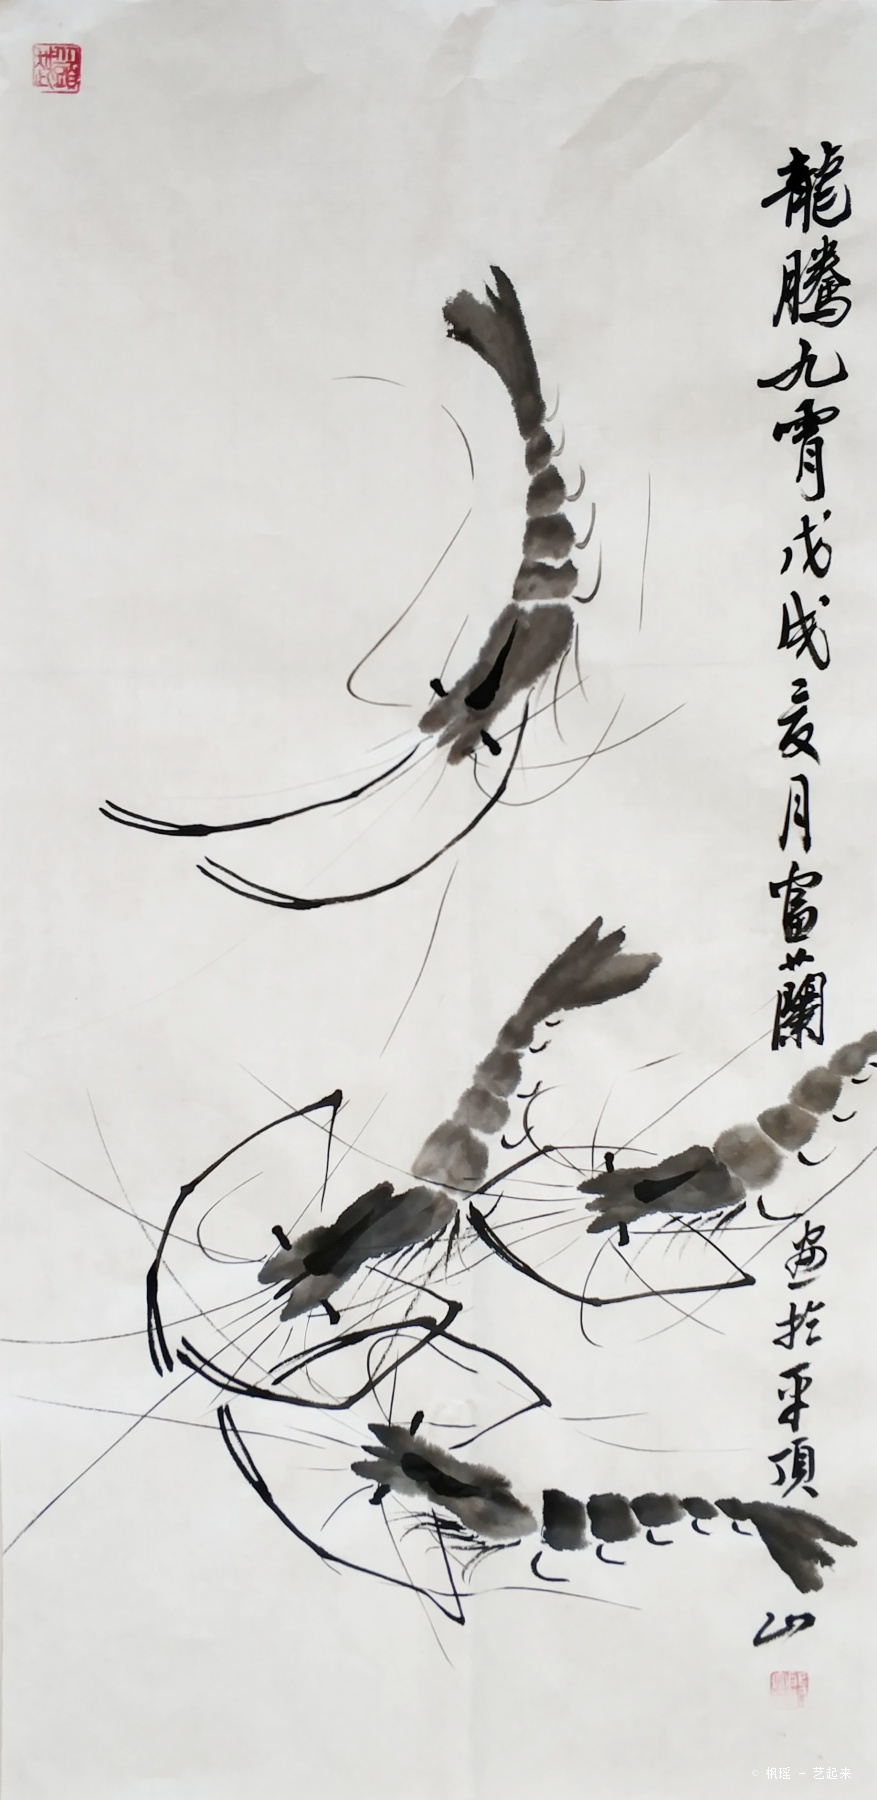 龍騰九霄戊戌亥月富蘭
畫於平頂山
© 枫瑶 - 艺起来